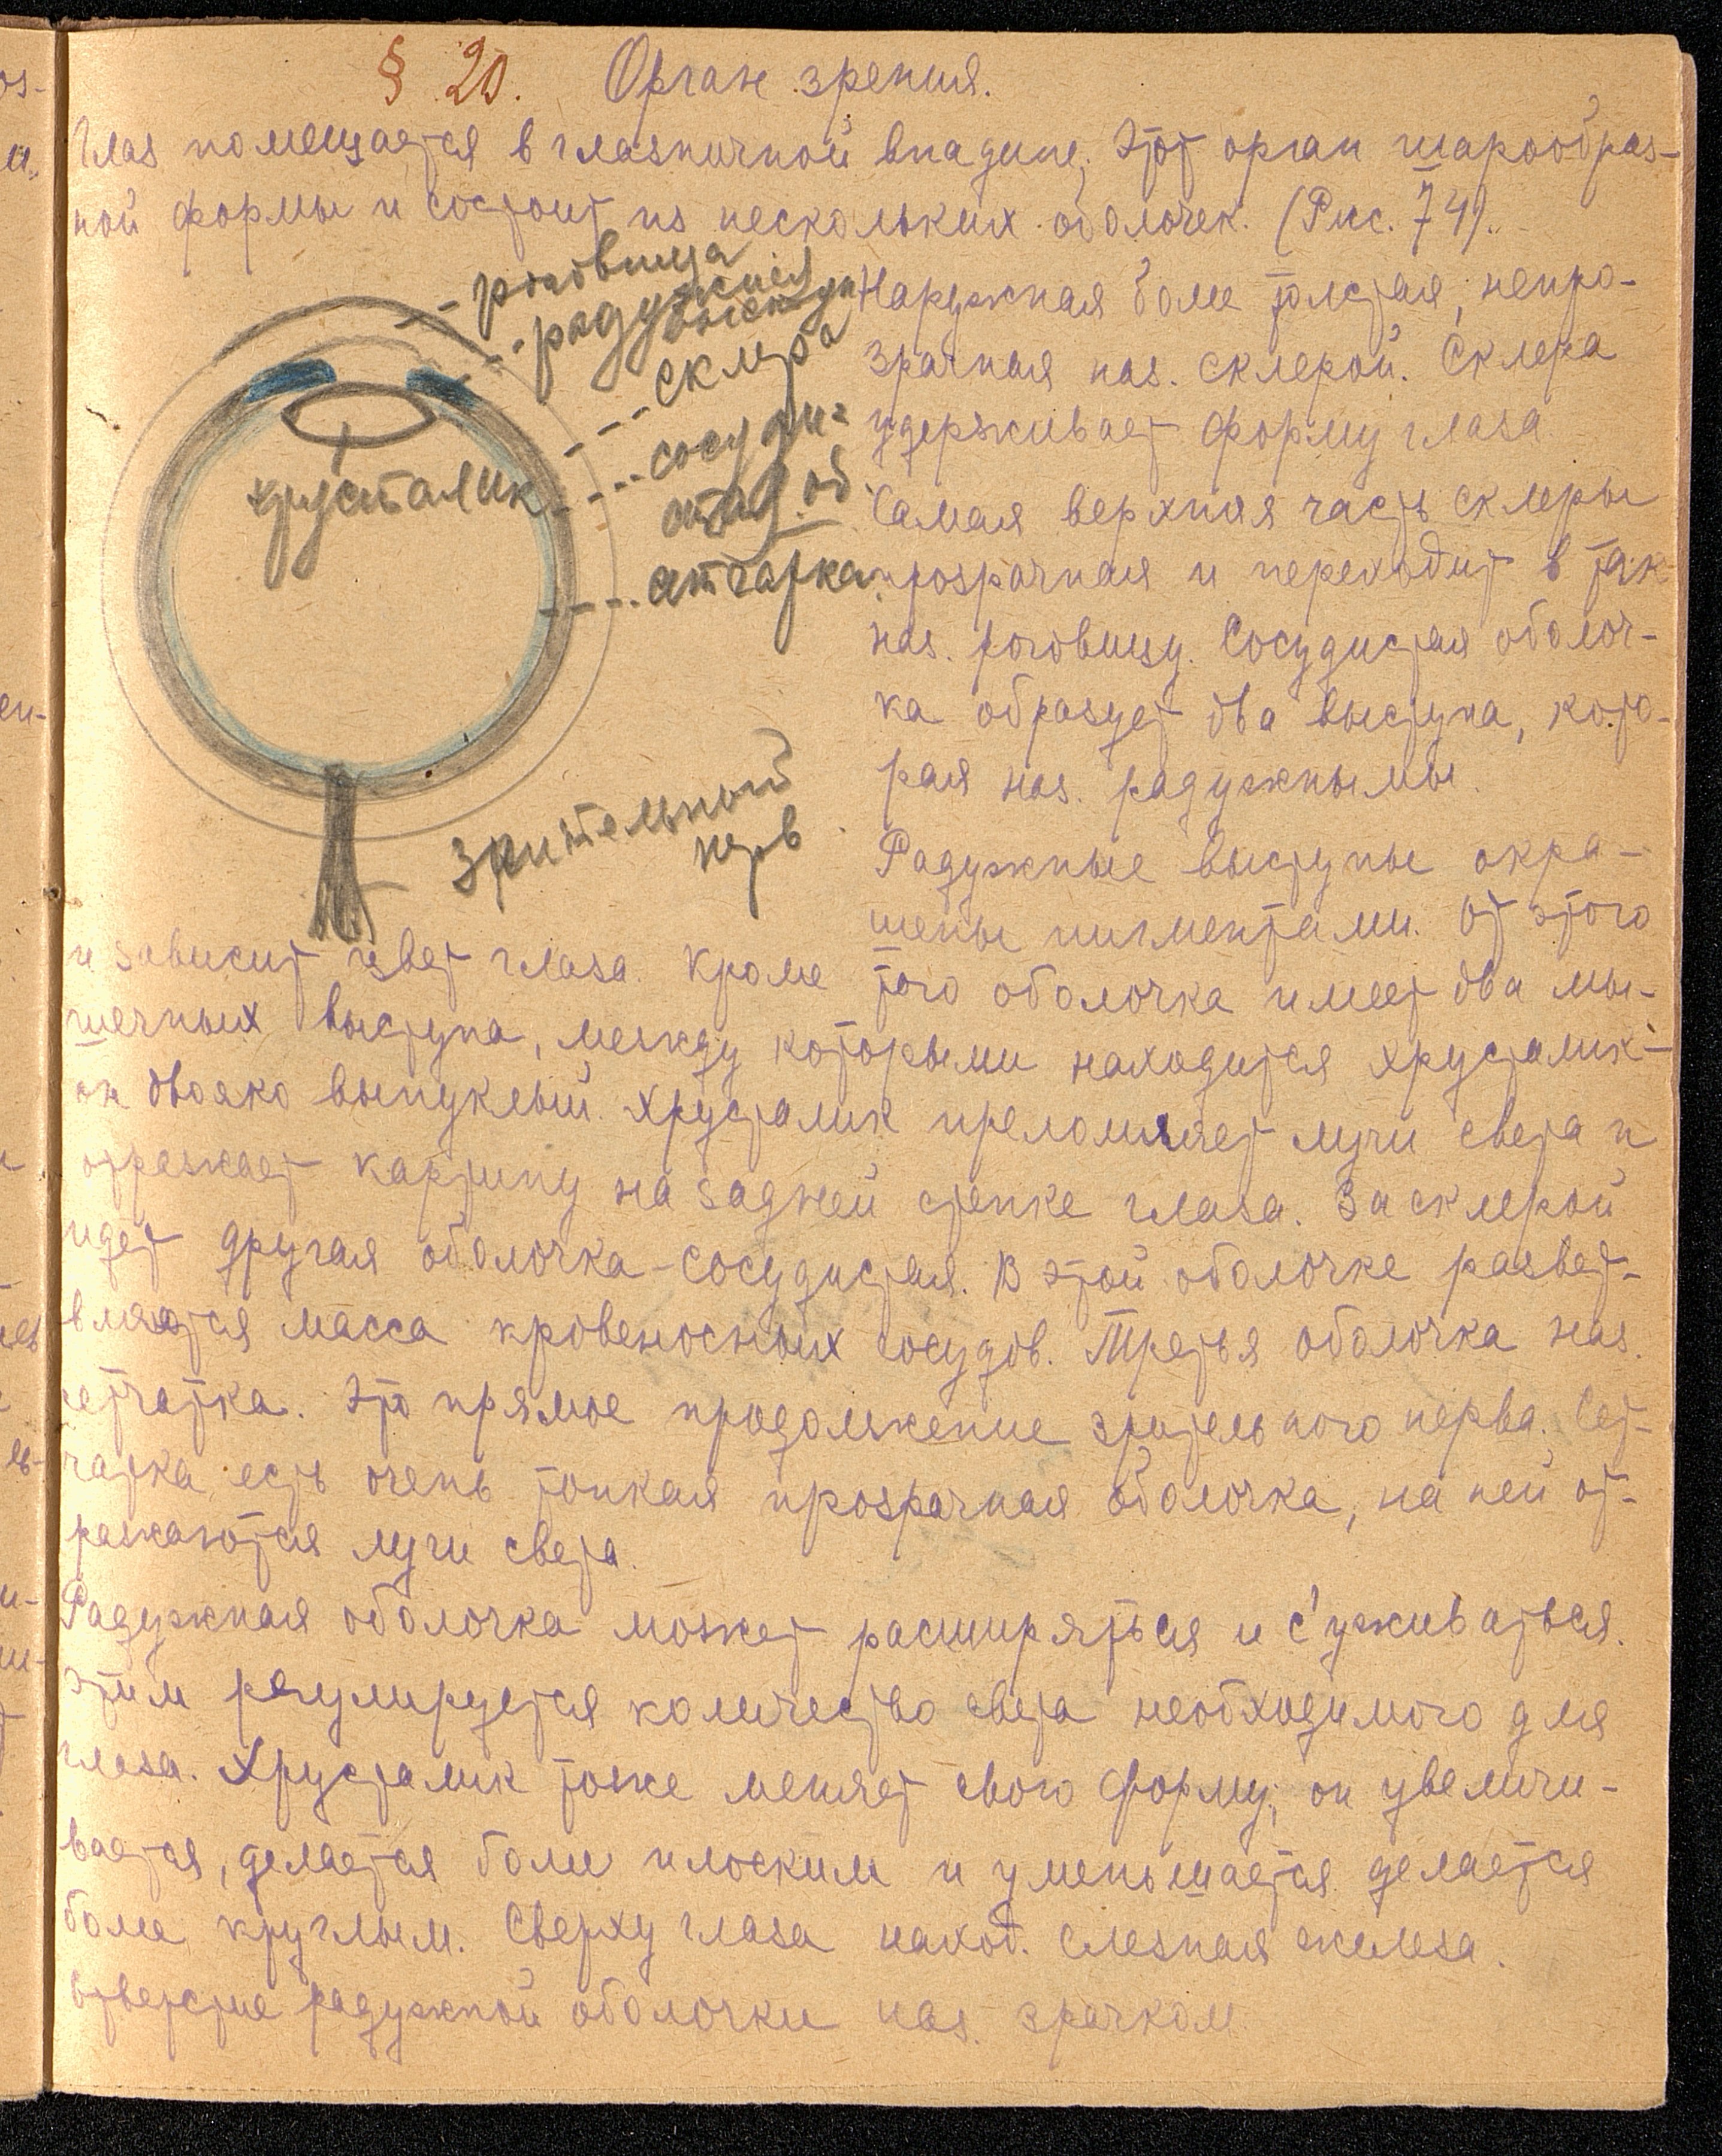 § 20. Орган зрения.
Глаз помещается в глазничной впадине. Этот орган шарообраз-
ной формы и состоит из нескольких оболочек. (Рис. 74).
роговица
радужные
выступы
склера
сосуди-
стая об.
сетчатка
хрусталик
зрительной
нерв
Наружная боле толстая, непро-
зрачная наз. склерой. Склера
удерживает форму глаза
Самая верхняя часть склеры
прозрачная и переходит в так
наз. роговицу. Сосудистая оболоч-
ка образует два выступа, кото-
рая наз. радужнымы.
Радужные выступы окра-
шены пигментами. От этого
и зависит цвет глаза. Кроме того оболочка имеет два мы-
шечных выступа, между которыми находится хрусталик-
он двояко выпуклый. Хрусталик преломляет лучи света и
отражает картину на задней стенке глаза. За склерой
идет другая оболочка-сосудистая. В этой оболочке развет-
вляются масса кровеносных сосудов. Третья оболочка наз.
сетчатка. Это прямое продолжение зрительного нерва. Сет-
чатка есть очень тонкая прозрачная оболочка, на ней от-
ражаются лучи света.
Радужная оболочка может расширяться и с'уживаться.
Этим регулируется количество света необходимого для
глаза. Хрусталик тоже меняет свою форму; он увеличи-
вается, делается боле плоским и уменьшается делается
боле круглым. Сверху глаза наход. слезная железа.
Отверстие радужной оболочки наз. зрачком